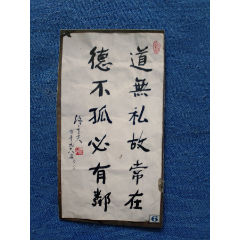 道無私故常在
德不孤必有鄰